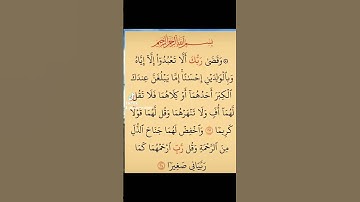 بسم الله الرحمن الرحيم
۞ وَقَضَىٰ رَبُّكَ أَلَّا تَعْبُدُوٓا۟ إِلَّآ إِيَّاهُ
وَبِٱلْوَٰلِدَيْنِ إِحْسَٰنًا ۚ إِمَّا يَبْلُغَنَّ عِندَكَ
ٱلْكِبَرَ أَحَدُهُمَآ أَوْ كِلَاهُمَا فَلَا تَقُل
لَّهُمَآ أُفٍّ وَلَا تَنْهَرْهُمَا وَقُل لَّهُمَا قَوْلًا
كَرِيمًا ٢٣ وَٱخْفِضْ لَهُمَا جَنَاحَ ٱلذُّلِّ
مِنَ ٱلرَّحْمَةِ وَقُل رَّبِّ ٱرْحَمْهُمَا كَمَا
رَبَّيَانِى صَغِيرًا ٢٤